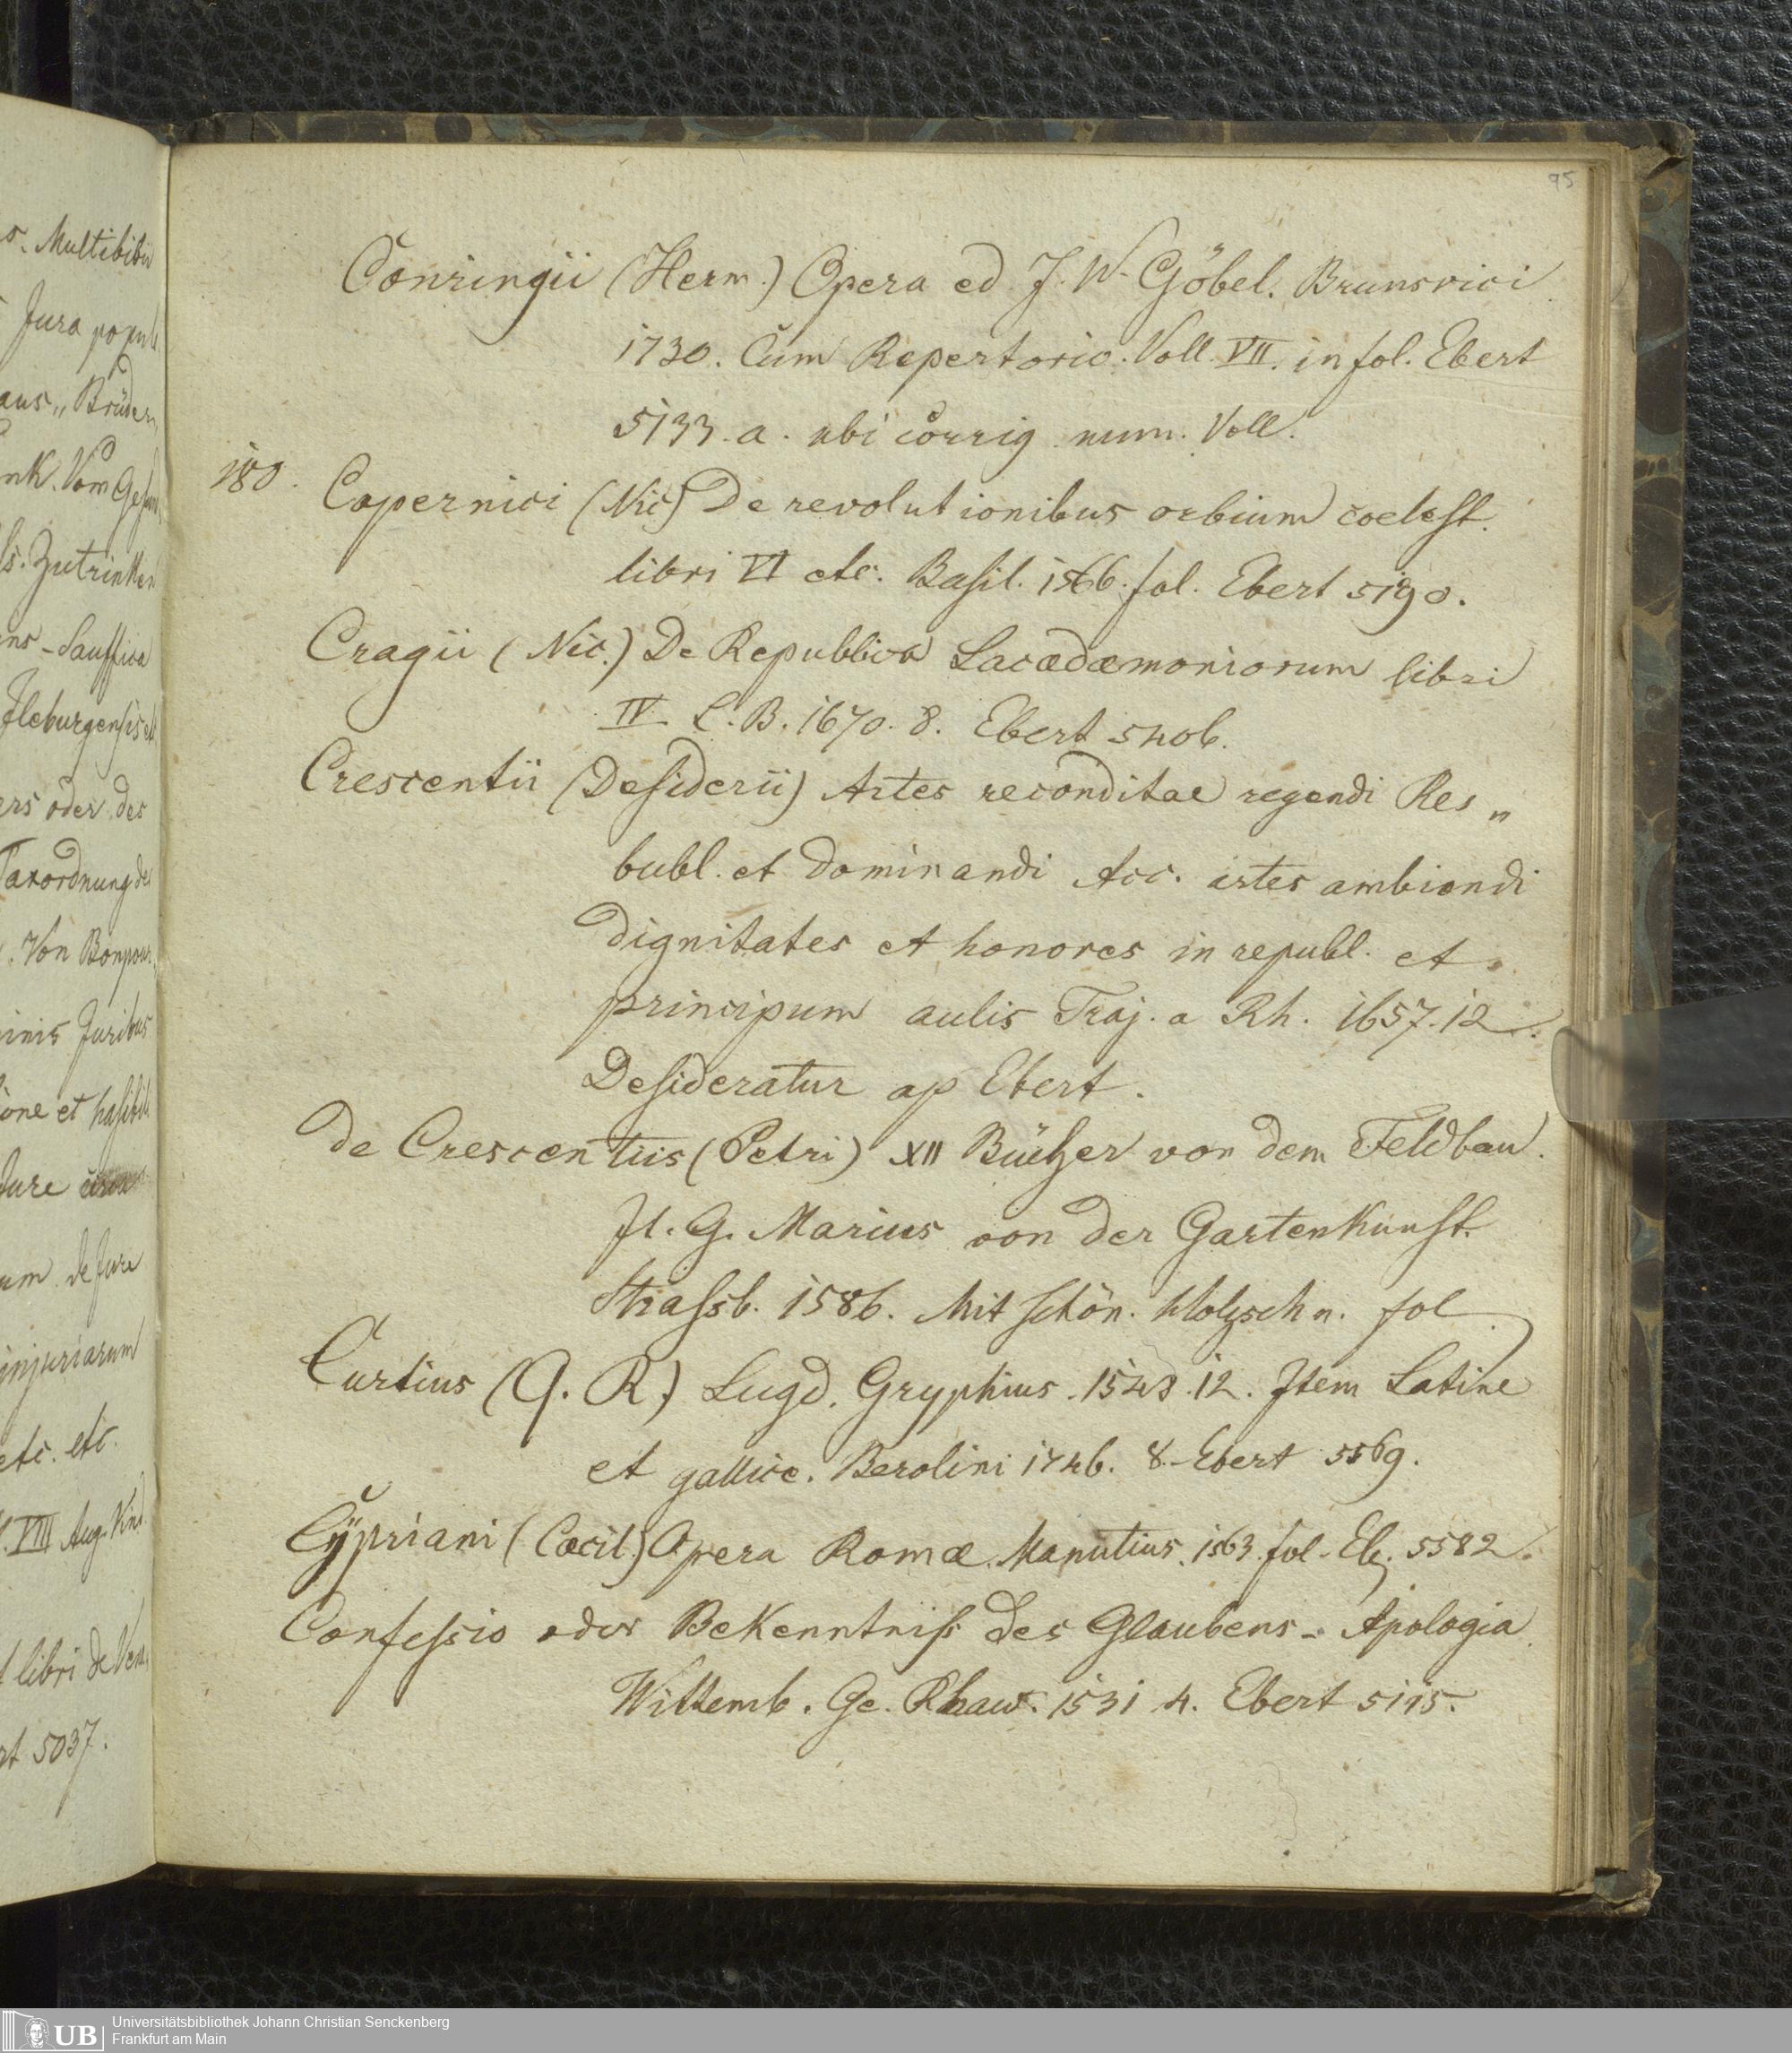 95
Conringii (Herm.) Opera ed J. W. Göbel. Brunsvici
1730. Cum Repertorio. Voll. VII. in fol. Ebert
5133. a. ubi corrig. num. Voll.
180. Copernici (Nic) De revolutionibus orbium coelest.
libri VI etc. Basil. 1566. fol. Ebert 5190.
Cragii (Nic.) De Republica Lacædæmoniorum libri
IV. L. B. 1670. 8. Ebert 5406.
Crescentii (Desiderii) Artes reconditae regendi Res„
bubl. et dominandi Acc. artes ambiendi
dignitates et honores in republ. et
principum aulis Traj. a Rh. 1657. 12.
Desideratur ap Ebert.
de Crescentiis (Petri) XII Bücher von dem Feldbau.
It. G. Marius von der Gartenkunst.
Strassb. 1586. Mit schön. Holzschn. fol.
Curtius (Q. R.) Lugd. Gryphius. 1548. 12. Item Latine
et gallice. Berolini 1746. 8. Ebert 5569.
Cypriani (Cæcil.) Opera Romæ. Manutius. 1563. fol. Eb. 5582.
Confessio oder Bekenntniss des Glaubens - Apologia
Wittemb. Ge. Rhaw. 1531 4. Ebert 5195.
s. Multibibis
Jura
aus„ Brüder
nk. Vom
s. Zutrinken
ns - Sauffica
ers oder des
Taxordnung des
. Von
inis Juribus
ione et
Jure
um de Jure
injuriarum
etc. etc.
VIII Aug. Vind.
libri de
rt 5037.
UB
Universitätsbibliothek Johann Christian Senckenberg
Frankfurt am Main